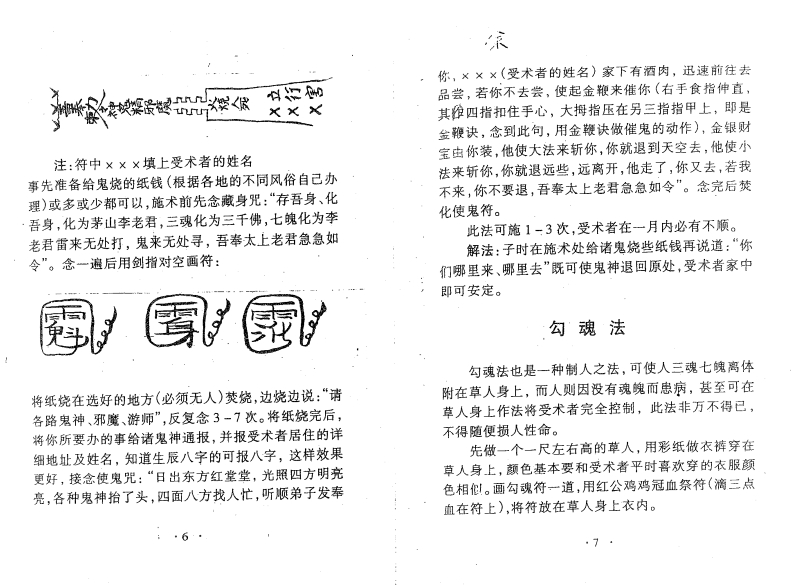 火烧人宛
立行宫
×××
注:符中×××填上受术者的姓名
事先准备给鬼烧的纸钱(根据各地的不同风俗自己办
理)或多或少都可以,施术前先念藏身咒:“存吾身、化
吾身,化为茅山李老君,三魂化为三千佛,七魄化为李
老君雷来无处打,鬼来无处寻,吾奉太上老君急急如
令”。念一遍后用剑指对空画符:
将纸烧在选好的地方(必须无人)焚烧,边烧边说:“请
各路鬼神、邪魔、游师”,反复念3-7次。将纸烧完后,
将你所要办的事给诸鬼神通报,并报受术者居住的详
细地址及姓名,知道生辰八字的可报八字,这样效果
更好,接念使鬼咒:“日出东方红堂堂,光照四方明亮
亮,各种鬼神抬了头,四面八方找人忙,听顺弟子发奉
·6·
你,×××(受术者的姓名)家下有酒肉,迅速前往去
品尝,若你不去尝,使起金鞭来催你(右手食指伸直,
其作四指扣住手心,大拇指压在另三指指甲上,即是
金鞭诀,念到此句,用金鞭诀做催鬼的动作),金银财
宝由你装,他使大法来斩你,你就退到天空去,他使小
法来斩你,你就退远些,远离开,他走了,你又去,若我
不来,你不要退,吾奉太上老君急急如令”。念完后焚
化使鬼符。
此法可施1-3次,受术者在一月内必有不顺。
解法:子时在施术处给诸鬼烧些纸钱再说道:“你
们哪里来、哪里去”既可使鬼神退回原处,受术者家中
即可安定。
勾魂法
勾魂法也是一种制人之法,可使人三魂七魄离体
附在草人身上,而人则因没有魂魄而患病,甚至可在
草人身上作法将受术者完全控制,此法非万不得已,
不得随便损人性命。
先做一个一尺左右高的草人,用彩纸做衣裤穿在
草人身上,颜色基本要和受术者平时喜欢穿的衣服颜
色相似。画勾魂符一道,用红公鸡鸡冠血祭符(滴三点
血在符上),将符放在草人身上衣内。
·7·